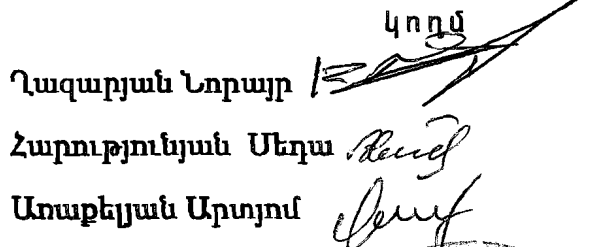 կողմ
Ղազարյան Նորայր
Հարությունյան Սեդա
Առաքելյան Արտյոմ